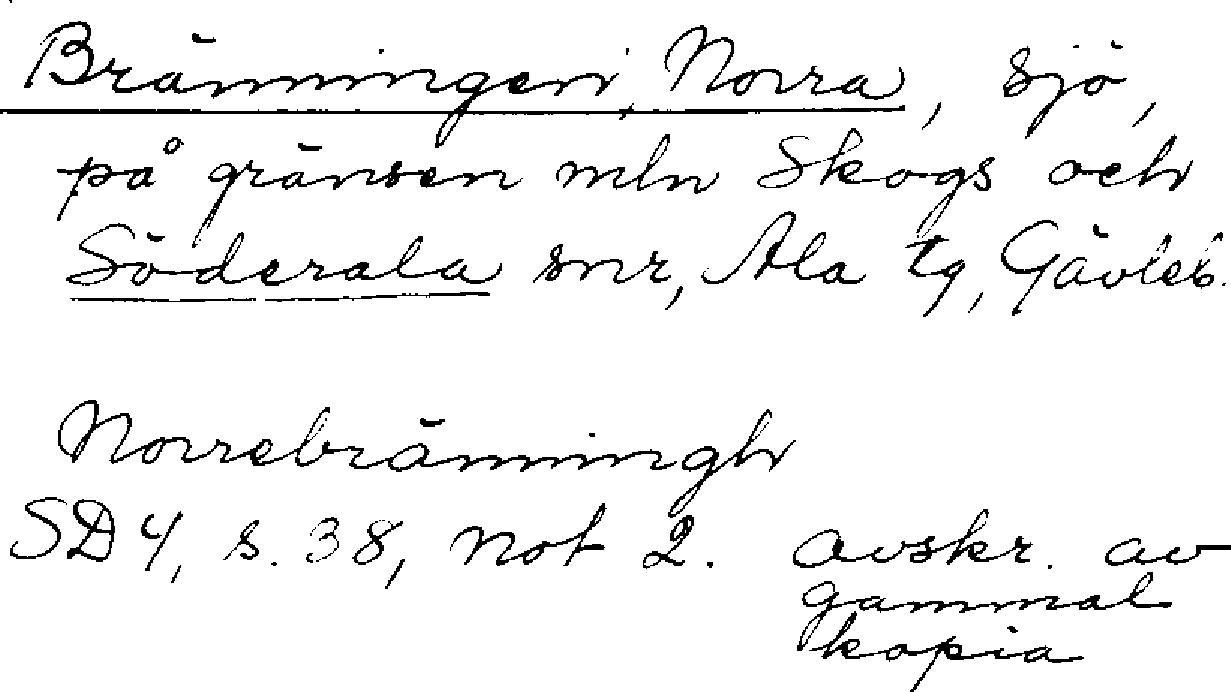 Bränningen, Norra, sjö,
på gränsen mln Skogs och
Söderala snr, Ala tg, Gävleb.
Norrebränningh
SD 4, s. 38, not 2. avskr. av
gammal
kopia